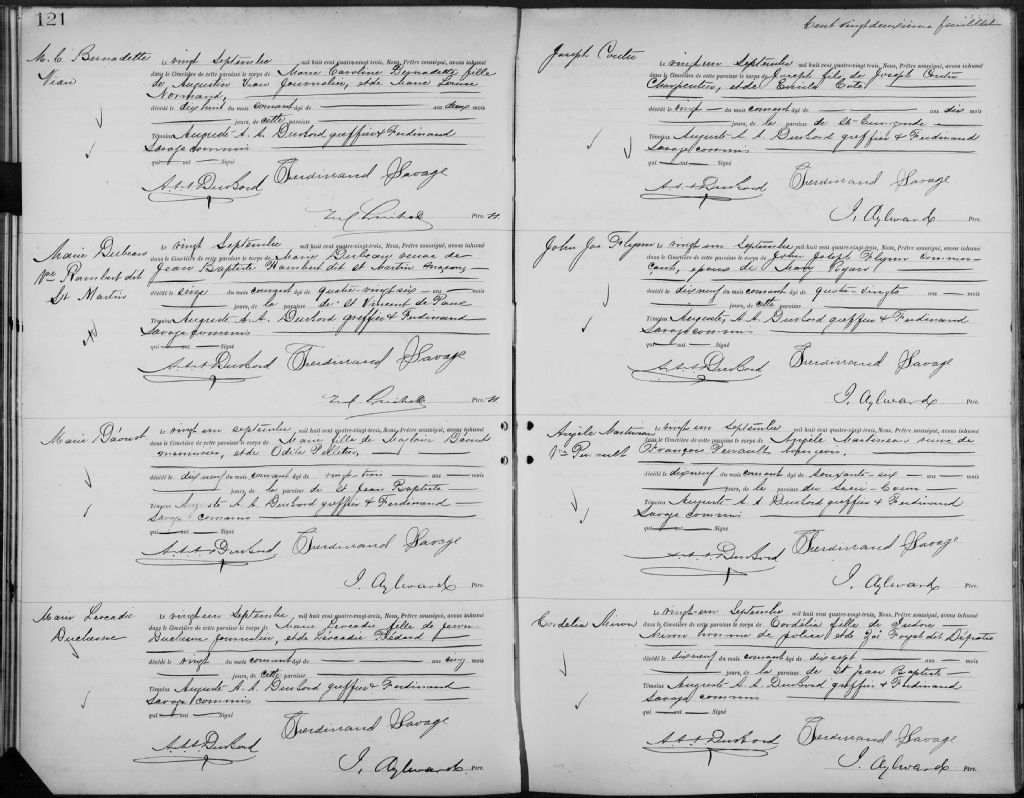 121
M. C. Bernadette
Vian
Le vingt Septembre mil huit cent quatre-vingt-trois, Nous, Prêtre soussigné, avons inhumé
dans le Cimetière de cette paroisse le corps de Marie Caroline Bernadette fille
de Augustin Vian Journalier, et de Marie Louise
Normand,
décédé le dix huit du mois courant âgé de ans deux mois
jours, de cette paroisse
Témoins Auguste A. A. Dubord greffier & Ferdinand
Savage commis
qui ont Signé
A. A. A. Dubord Ferdinand Savage
Ptre.
Marie Dubeau
Vve Rambert dit
St Martin
Le vingt Septembre mil huit cent quatre-vingt-trois, Nous, Prêtre soussigné, avons inhumé
dans le Cimetière de cette paroisse le corps de Marie Dubeau veuve de
Jean Baptiste Rambert dit St Martin maçon
décédé le seize du mois courant âgé de quatre-vingt six ans mois
jours, de la paroisse de St Vincent de Paul
Témoins Auguste A. A. Dubord greffier & Ferdinand
Savage commis
qui ont Signé
A. A. A. Dubord Ferdinand Savage
Ptre.
Marie Daoust
Le vingt un septembre mil huit cent quatre-vingt-trois, Nous, Prêtre soussigné, avons inhumé
dans le Cimetière de cette paroisse le corps de Marie fille de Magloire Daoust
menuisier, et de Odile Pelletier,
décédé le dix neuf du mois courant âgé de vingt trois ans mois
jours, de la paroisse de St Jean Baptiste
Témoins Auguste A. A. Dubord greffier & Ferdinand
Savage commis
qui ont Signé
A. A. A. Dubord Ferdinand Savage
J. Aylward Ptre.
Marie Léocadie
Duchesne
Le vingt un Septembre mil huit cent quatre-vingt-trois, Nous, Prêtre soussigné, avons inhumé
dans le Cimetière de cette paroisse le corps de Marie Léocadie fille de
Duchesne journalier, et de Léocadie Bédard
décédé le vingt du mois courant âgé de ans cinq mois
jours, de cette paroisse
Témoins Auguste A. A. Dubord greffier & Ferdinand
Savage commis
qui ont Signé
A. A. A. Dubord Ferdinand Savage
J. Aylward Ptre.
Cent vingt deuxième feuillet
Joseph Coutu
Le vingt un Septembre mil huit cent quatre-vingt-trois, Nous, Prêtre soussigné, avons inhumé
dans le Cimetière de cette paroisse le corps de Joseph fils de Joseph Coutu
Charpentier, et de
décédé le vingt du mois courant âgé de ans dix mois
jours, de la paroisse de Ste Cunégonde
Témoins Auguste A. A. Dubord greffier & Ferdinand
Savage commis
qui ont Signé
A. A. A. Dubord Ferdinand Savage
J. Aylward Ptre.
John Jos Flynn
Le vingt un Septembre mil huit cent quatre-vingt-trois, Nous, Prêtre soussigné, avons inhumé
dans le Cimetière de cette paroisse le corps de John Joseph Flynn commer-
çant, époux de Mary Ryan
décédé le dix neuf du mois courant âgé de quatre-vingts ans mois
jours, de cette paroisse
Témoins Auguste A. A. Dubord greffier & Ferdinand
Savage commis
qui ont Signé
A. A. A. Dubord Ferdinand Savage
J. Aylward Ptre.
Angèle Martineau
Vve Perrault
Le vingt un Septembre mil huit cent quatre-vingt-trois, Nous, Prêtre soussigné, avons inhumé
dans le Cimetière de cette paroisse le corps de Angèle Martineau veuve de
François Perrault bourgeois,
décédé le dix neuf du mois courant âgé de soixante-six ans mois
jours, de la paroisse du Sacré-Coeur
Témoins Auguste A. A. Dubord greffier & Ferdinand
Savage commis
qui ont Signé
A. A. A. Dubord Ferdinand Savage
J. Aylward Ptre.
Cordélia Miron
Le vingt-un Septembre mil huit cent quatre-vingt-trois, Nous, Prêtre soussigné, avons inhumé
dans le Cimetière de cette paroisse le corps de Cordélia fille de Isidore
Miron homme de police, et de Zoé
décédé le dix neuf du mois courant âgé de dix sept ans mois
jours, de la paroisse de St Jean Baptiste
Témoins Auguste A. A. Dubord greffier & Ferdinand
Savage commis
qui ont Signé
A. A. A. Dubord Ferdinand Savage
J. Aylward Ptre.